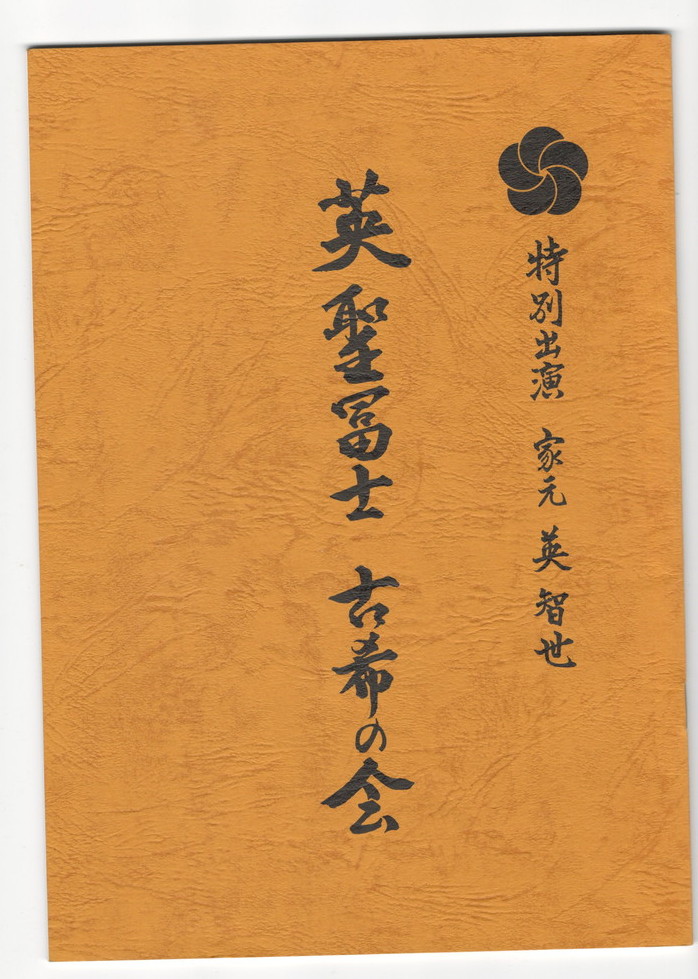 特別出演 家元 英 智世
英 聖冨士 古希の会